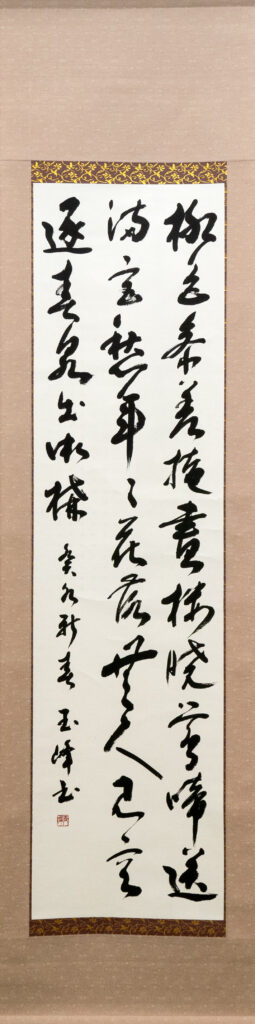 柳色参差掩畫樓暁鶯啼送
満宮愁年々花落無人見空
逐春泉出御溝
癸卯新春 玉峰書